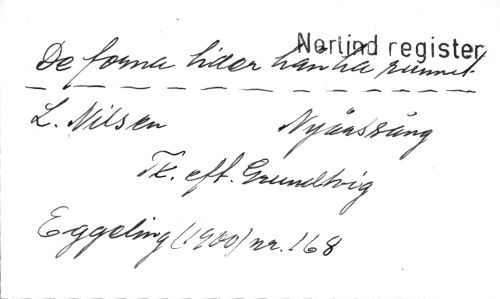 Norlind register
De forna tider hän ha runnit.
L. Nilsen Nyårssång
Tk. eft. Grundtvig
Eggeling (1900) nr. 168